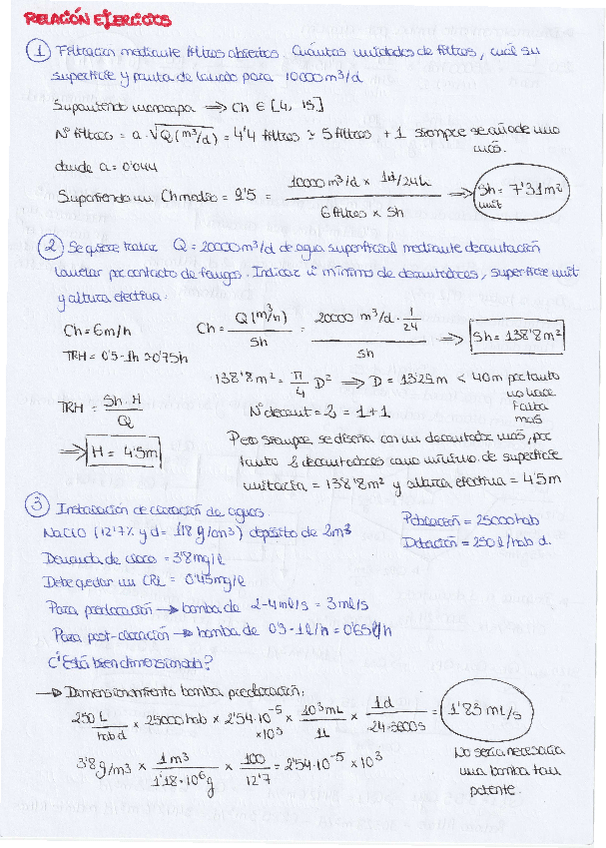 RELACIÓN EJERCICIOS
① Filtración mediante filtros abiertos. Cuántas unidades de filtros, cuál su
superficie y pauta de lavado para 10000 m³/d
Suponiendo monocapa ⇒ Ch ∈ [4, 15]
Nº filtros = a · √Q (m³/d) = 4'4 filtros ≃ 5 filtros + 1 siempre se añade uno
más.
donde a = 0'044
Suponiendo un Ch medio = 9'5 = 10000 m³/d × 1d/24h / 6 filtros × Sh → Sh unit = 7'31 m²
② Se quiere tratar Q = 20000 m³/d de agua superficial mediante decantación
lamelar por contacto de fangos. Indicar nº mínimo de decantadores, superficie unit
y altura efectiva:
Ch = 6 m/h Ch = Q (m³/h) / Sh = 20000 m³/d · 1/24 / Sh ⇒ Sh = 138'8 m²
TRH = 0'5 - 1h ≃ 0'75h
138'8 m² = π/4 D² ⇒ D = 13'29 m < 40 m por tanto
no hace
falta
más
TRH = Sh · H / Q
Nº decant = 2 = 1 + 1
⇒ H = 4'5 m
Pero siempre se diseña con un decantador más, por
tanto 2 decantadores como mínimo de superficie
unitaria = 138'8 m² y altura efectiva = 4'5 m
③ Instalación de cloración de aguas.
NaClO (12'7% y d = 1'18 g/cm³) depósito de 2m³
Población = 25000 hab
Dotación = 250 l/hab d.
Demanda de cloro = 3'8 mg/l
Debe quedar un CRL = 0'45 mg/l
Para precloración → bomba de 2-4 ml/s = 3 ml/s
Para post-cloración → bomba de 0'3 - 1 l/h = 0'65 l/h
¿Está bien dimensionada?
→ Dimensionamiento bomba precloración:
250 L / hab d × 25000 hab × 2'54·10⁻⁵ ×10³ × 10³ mL / 1L × 1d / 24·3600s = 1'83 mL/s
3'8 g/m³ × 1 m³ / 1'18·10⁶ g × 100 / 12'7 = 2'54·10⁻⁵ × 10³
No sería necesaria
una bomba tan
potente.